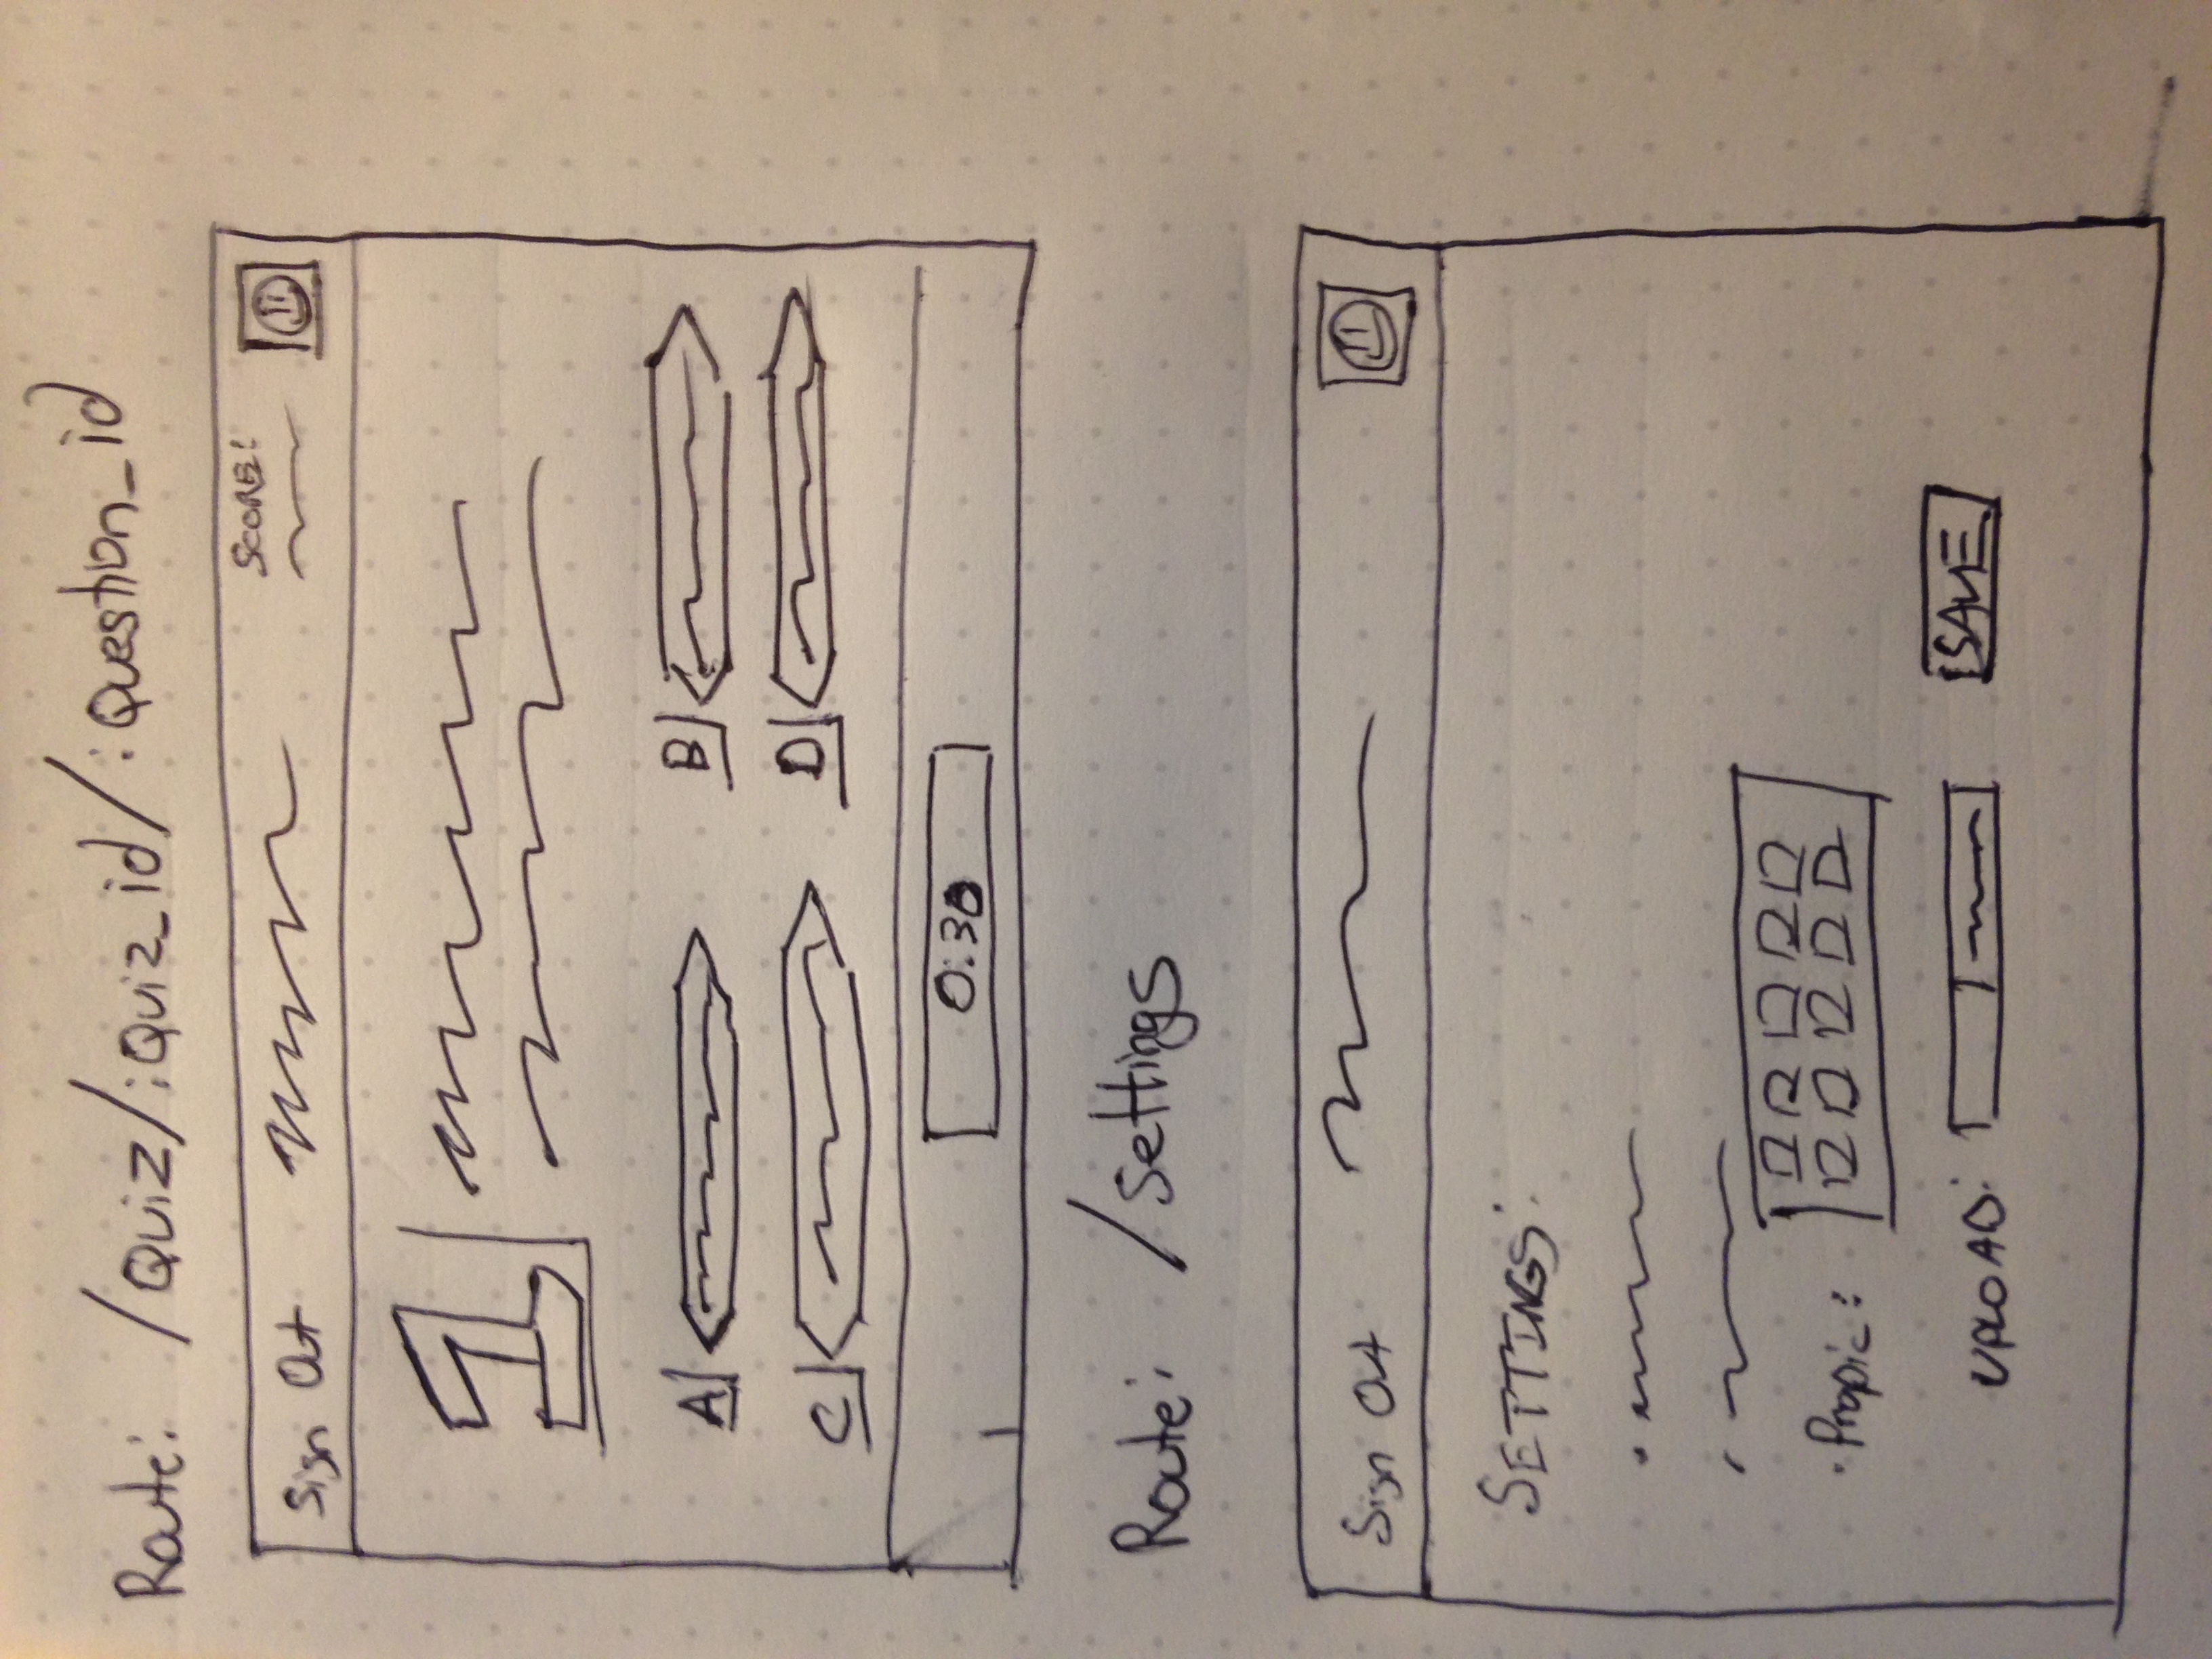 Route: /Quiz/:Quiz_id/:Question_id
Sign Out
SCORE:
1
A
B
C
D
0:30
Route: /settings
Sign Out
SETTINGS:
Propic:
UPLOAD:
SAVE